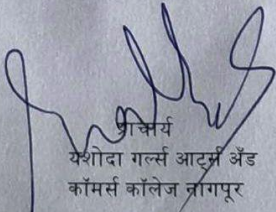 प्राचार्य
यशोदा गर्ल्स आर्ट्स अँड
कॉमर्स कॉलेज नागपूर